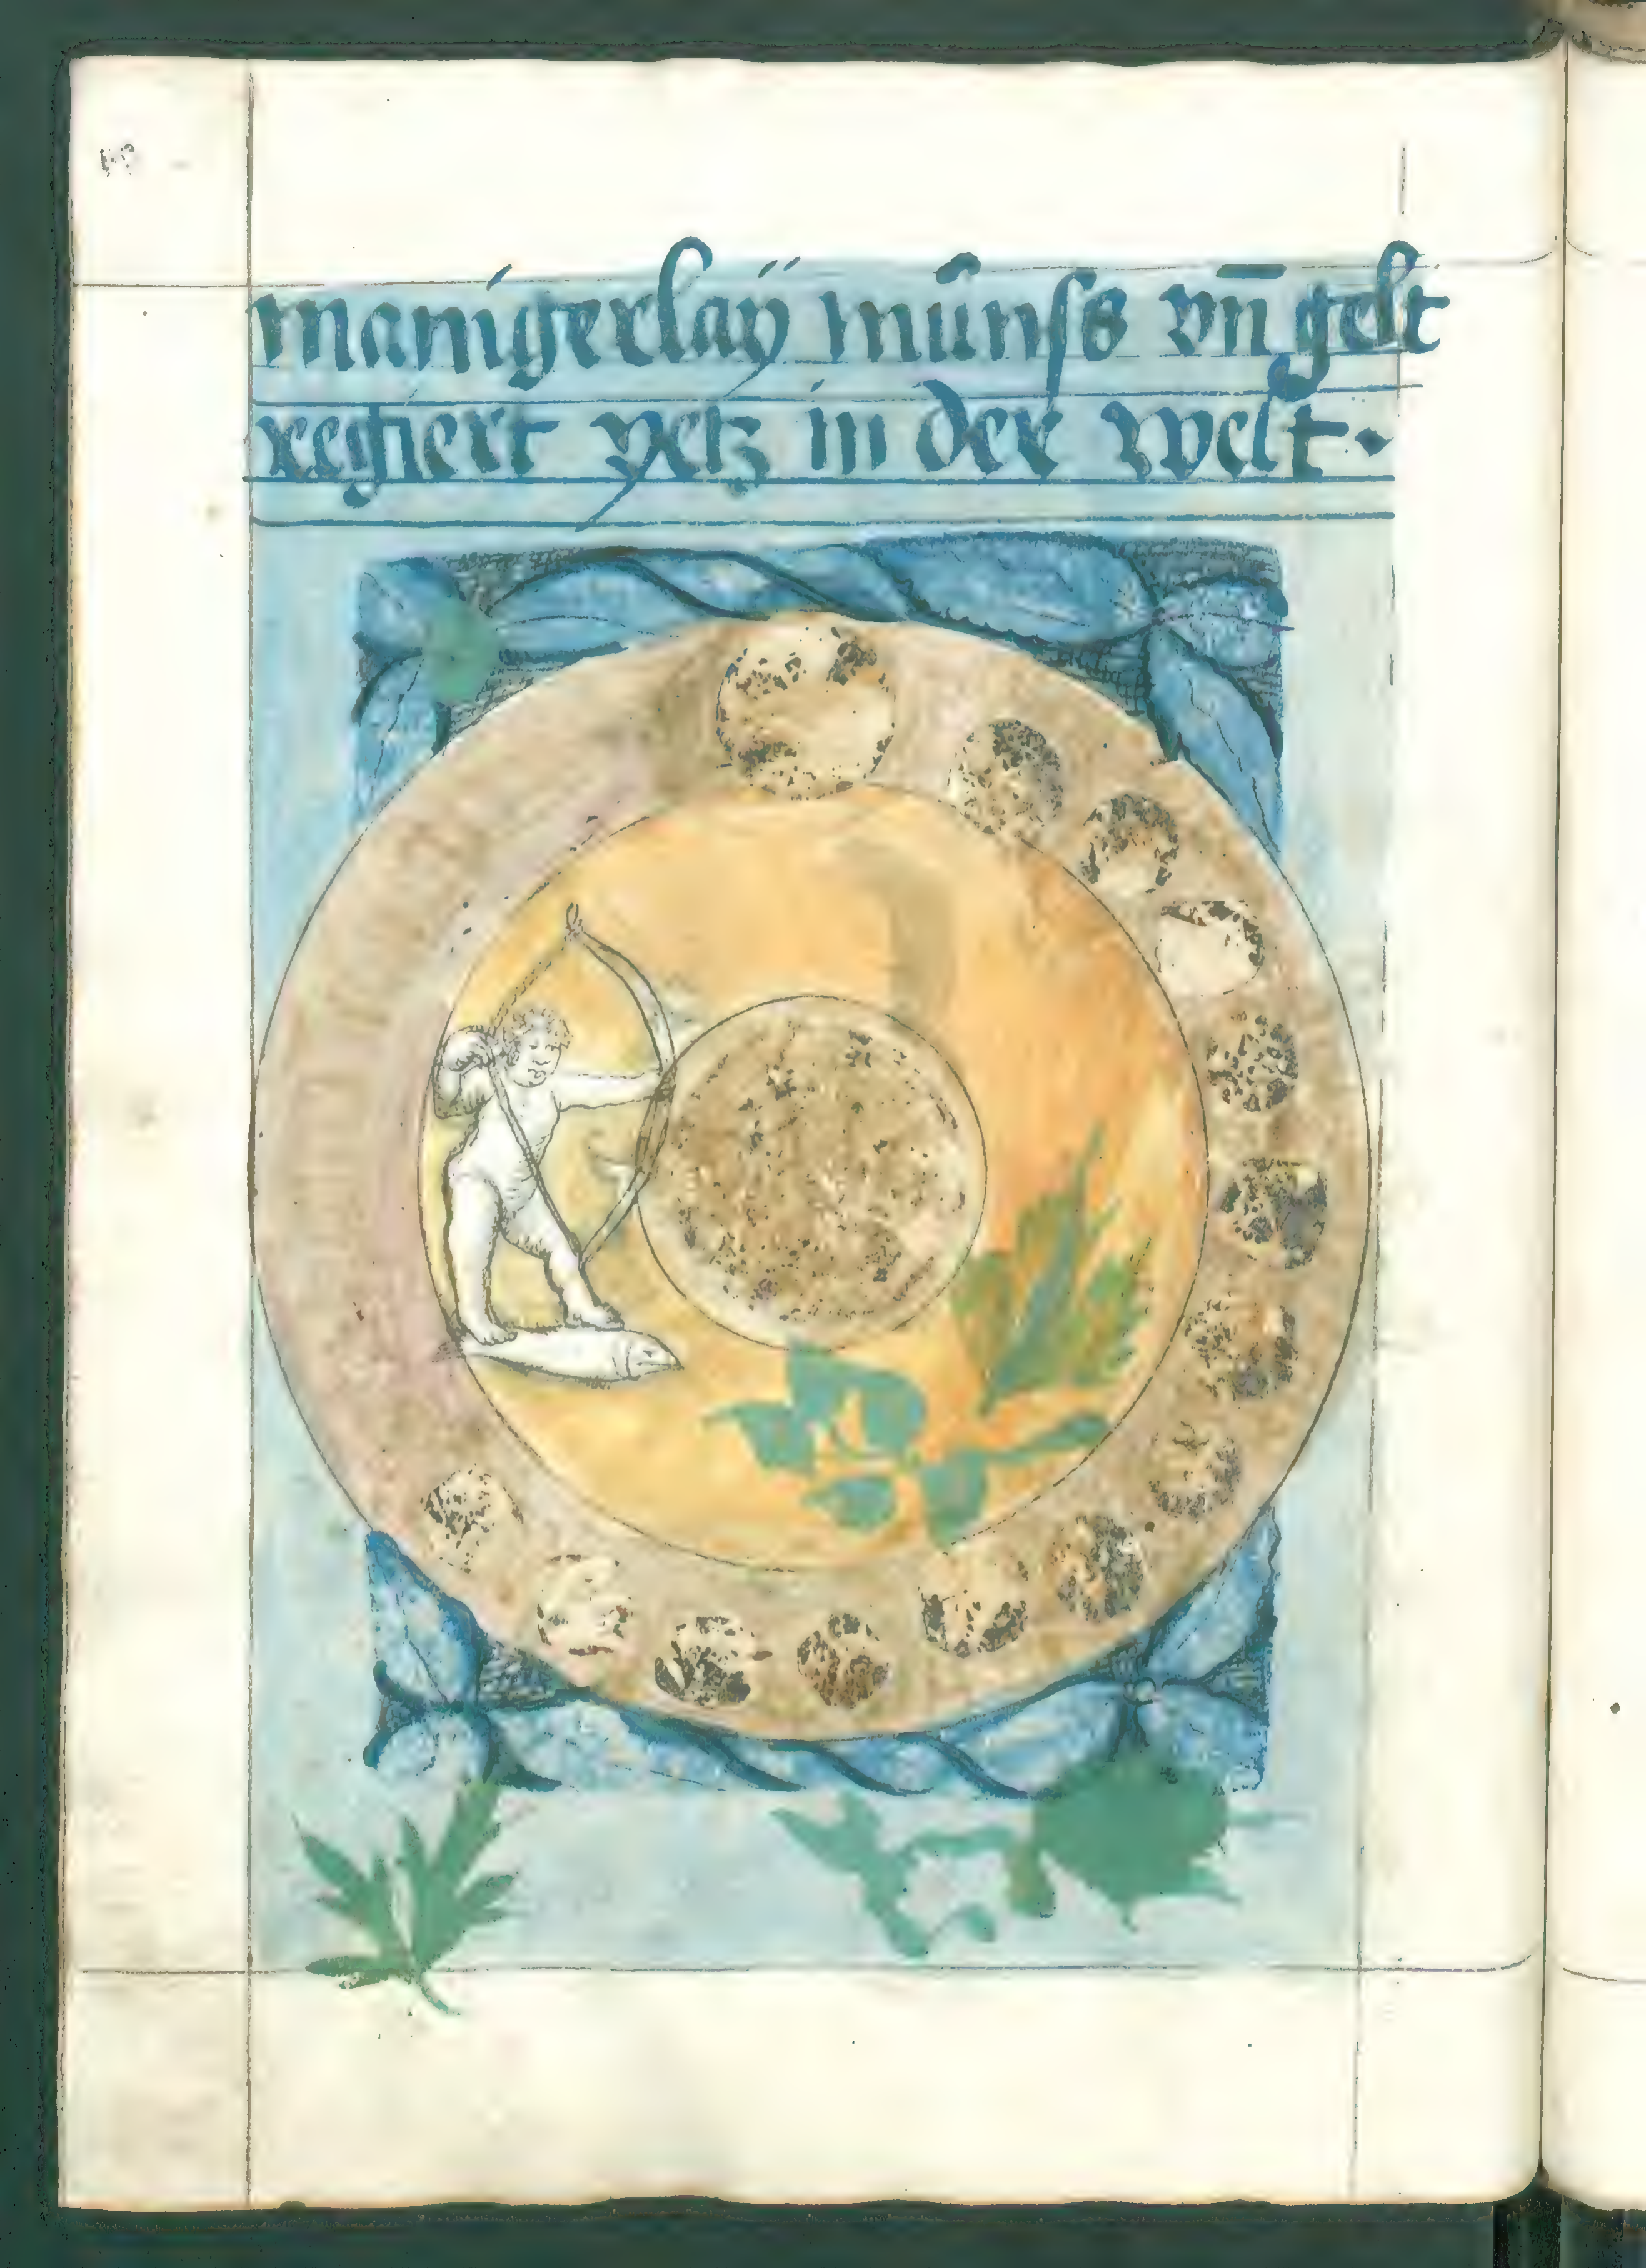 manigerlaÿ mu̇nſs vn̄ gelt
regiert yetz in der welt·